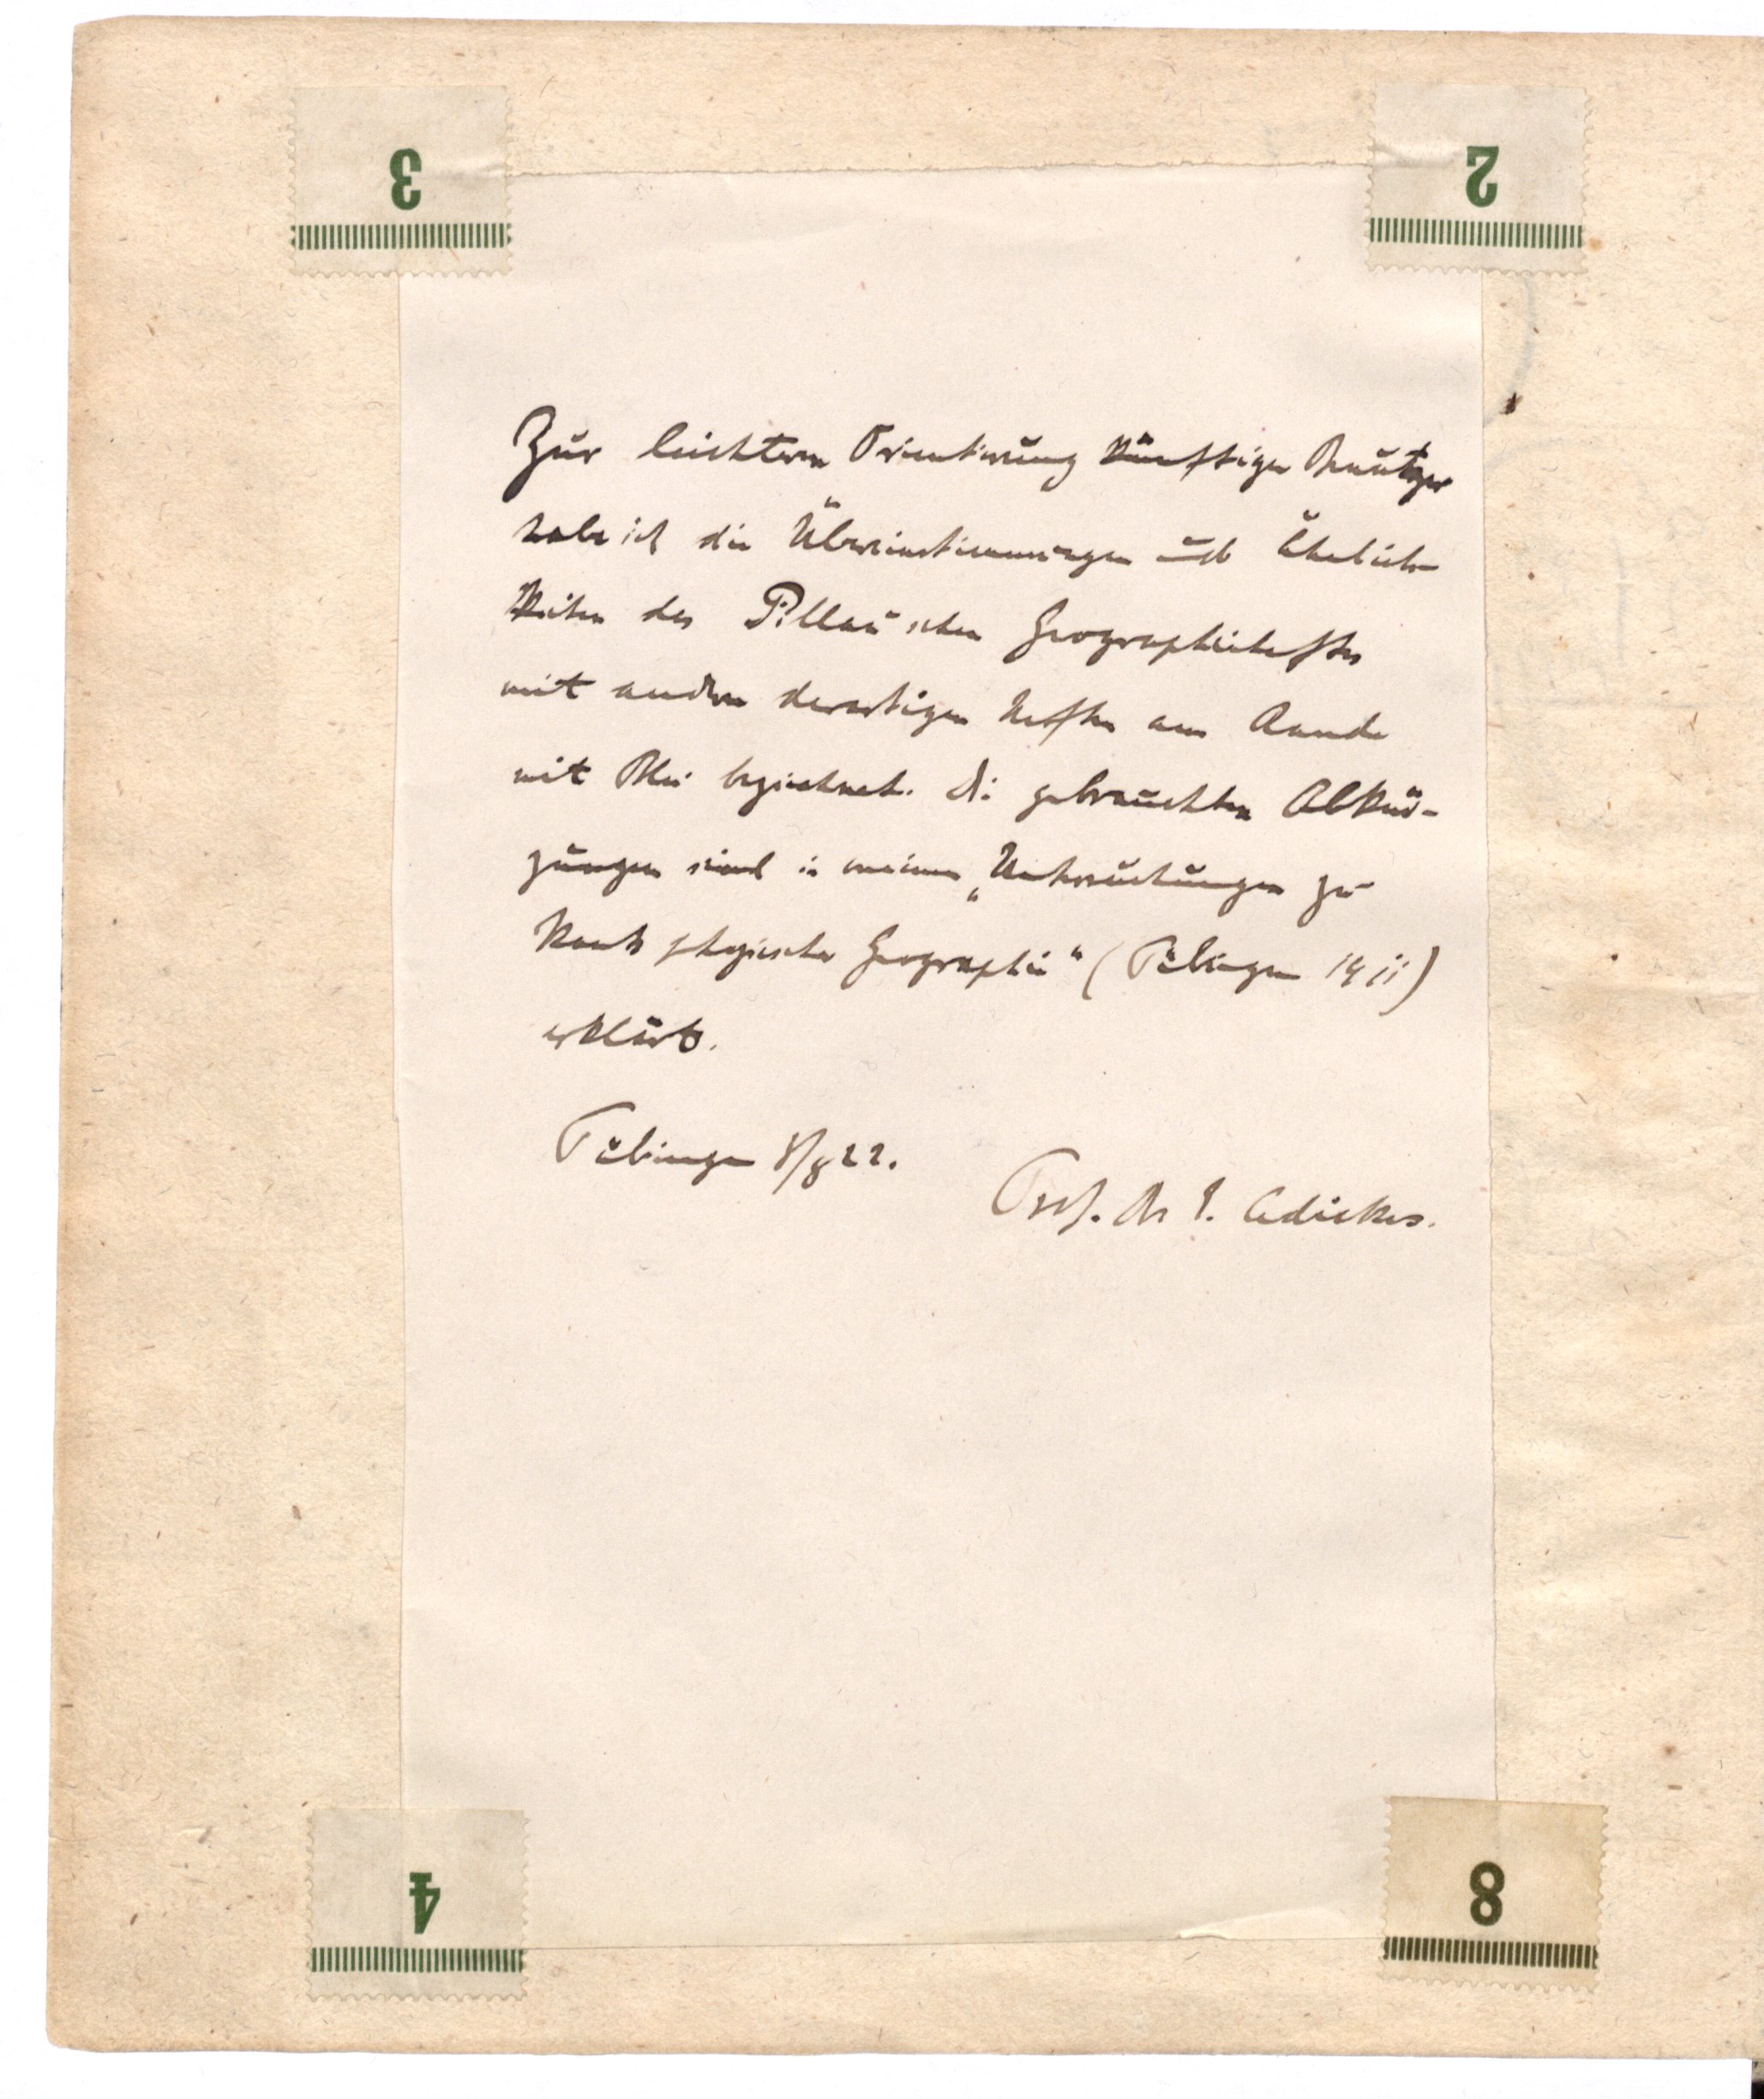 3
2
Zur leichtern Orientierung künftiger Benutzer
habe ich die Übereinstimmungen und Ähnlich-
keiten des Pillauschen Geographieheftes
mit andern derartigen Heften am Rande
mit Blei bezeichnet. Die gebrauchten Abkür-
zungen sind in meinen „Untersuchungen zu
Kants physischer Geographie“ (Tübingen 1911)
erklärt.
Tübingen 8/8 22.
Prof. Dr E. Adickes.
4
8